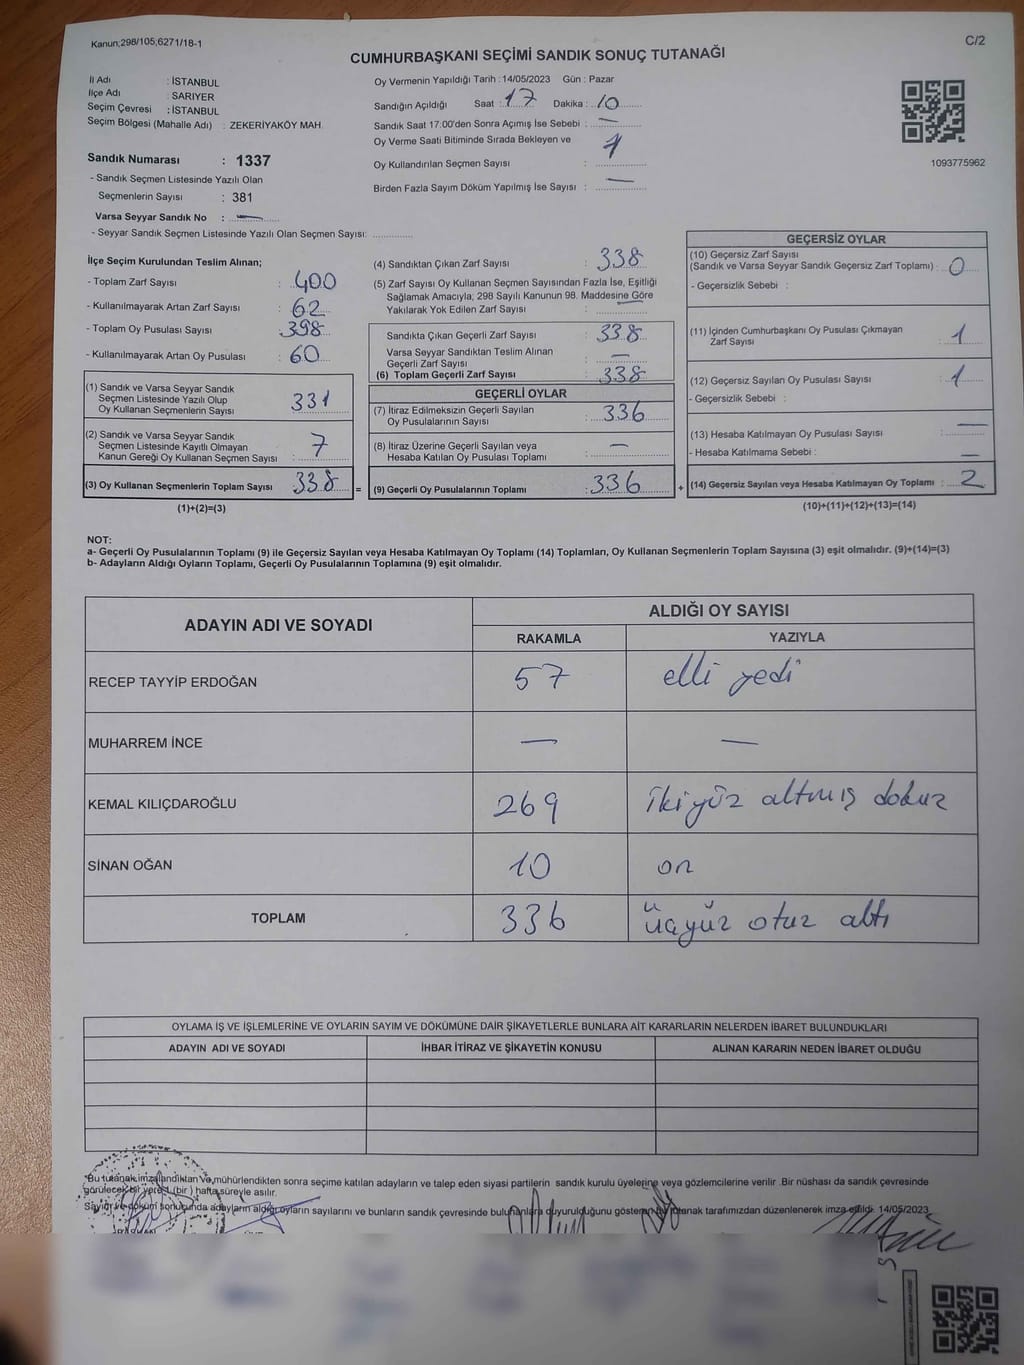 Kanun;298/105;6271/18-1
C/2
CUMHURBAŞKANI SEÇİMİ SANDIK SONUÇ TUTANAĞI
İl Adı : İSTANBUL
İlçe Adı : SARIYER
Seçim Çevresi : İSTANBUL
Seçim Bölgesi (Mahalle Adı) : ZEKERİYAKÖY MAH.
Sandık Numarası : 1337
- Sandık Seçmen Listesinde Yazılı Olan
Seçmenlerin Sayısı : 381
Varsa Seyyar Sandık No : —
- Seyyar Sandık Seçmen Listesinde Yazılı Olan Seçmen Sayısı: ..............
Oy Vermenin Yapıldığı Tarih : 14/05/2023 Gün : Pazar
Sandığın Açıldığı Saat : 17 Dakika : 10
Sandık Saat 17:00'den Sonra Açımış İse Sebebi : —
Oy Verme Saati Bitiminde Sırada Bekleyen ve
Oy Kullandırılan Seçmen Sayısı : 1
Birden Fazla Sayım Döküm Yapılmış İse Sayısı : —
1093775962
İlçe Seçim Kurulundan Teslim Alınan;
- Toplam Zarf Sayısı : 400
- Kullanılmayarak Artan Zarf Sayısı : 62
- Toplam Oy Pusulası Sayısı : 398
- Kullanılmayarak Artan Oy Pusulası : 60
(1) Sandık ve Varsa Seyyar Sandık
Seçmen Listesinde Yazılı Olup
Oy Kullanan Seçmenlerin Sayısı 331
(2) Sandık ve Varsa Seyyar Sandık
Seçmen Listesinde Kayıtlı Olmayan
Kanun Gereği Oy Kullanan Seçmen Sayısı : 7
(3) Oy Kullanan Seçmenlerin Toplam Sayısı 338 =
(1)+(2)=(3)
(4) Sandıktan Çıkan Zarf Sayısı : 338
(5) Zarf Sayısı Oy Kullanan Seçmen Sayısından Fazla İse, Eşitliği
Sağlamak Amacıyla; 298 Sayılı Kanunun 98. Maddesine Göre
Yakılarak Yok Edilen Zarf Sayısı : —
Sandıkta Çıkan Geçerli Zarf Sayısı : 338
Varsa Seyyar Sandıktan Teslim Alınan
Geçerli Zarf Sayısı : —
(6) Toplam Geçerli Zarf Sayısı : 338
GEÇERLİ OYLAR
(7) İtiraz Edilmeksizin Geçerli Sayılan
Oy Pusulalarının Sayısı : 336
(8) İtiraz Üzerine Geçerli Sayılan veya
Hesaba Katılan Oy Pusulası Toplamı : —
(9) Geçerli Oy Pusulalarının Toplamı : 336 +
GEÇERSİZ OYLAR
(10) Geçersiz Zarf Sayısı
(Sandık ve Varsa Seyyar Sandık Geçersiz Zarf Toplamı) : 0
- Geçersizlik Sebebi :
(11) İçinden Cumhurbaşkanı Oy Pusulası Çıkmayan
Zarf Sayısı : 1
(12) Geçersiz Sayılan Oy Pusulası Sayısı : 1
- Geçersizlik Sebebi :
(13) Hesaba Katılmayan Oy Pusulası Sayısı : —
- Hesaba Katılmama Sebebi : —
(14) Geçersiz Sayılan veya Hesaba Katılmayan Oy Toplamı : 2
(10)+(11)+(12)+(13)=(14)
NOT:
a- Geçerli Oy Pusulalarının Toplamı (9) ile Geçersiz Sayılan veya Hesaba Katılmayan Oy Toplamı (14) Toplamları, Oy Kullanan Seçmenlerin Toplam Sayısına (3) eşit olmalıdır. (9)+(14)=(3)
b- Adayların Aldığı Oyların Toplamı, Geçerli Oy Pusulalarının Toplamına (9) eşit olmalıdır.
ADAYIN ADI VE SOYADI ALDIĞI OY SAYISI
RAKAMLA YAZIYLA
RECEP TAYYİP ERDOĞAN 57 elli yedi
MUHARREM İNCE — —
KEMAL KILIÇDAROĞLU 269 ikiyüz altmış dokuz
SİNAN OĞAN 10 on
TOPLAM 336 üçyüz otuz altı
OYLAMA İŞ VE İŞLEMLERİNE VE OYLARIN SAYIM VE DÖKÜMÜNE DAİR ŞİKAYETLERLE BUNLARA AİT KARARLARIN NELERDEN İBARET BULUNDUKLARI
ADAYIN ADI VE SOYADI İHBAR İTİRAZ VE ŞİKAYETİN KONUSU ALINAN KARARIN NEDEN İBARET OLDUĞU
*Bu tutanak imzalandıktan ve mühürlendikten sonra seçime katılan adayların ve talep eden siyasi partilerin sandık kurulu üyelerine veya gözlemcilerine verilir .Bir nüshası da sandık çevresinde
görülecek bir yere 1 (bir ) hafta süreyle asılır.
Sayım ve döküm sonucunda adayların aldığı oyların sayılarını ve bunların sandık çevresinde bulunanlara duyurulduğunu gösteren bu tutanak tarafımızdan düzenlenerek imza edildi. 14/05/2023